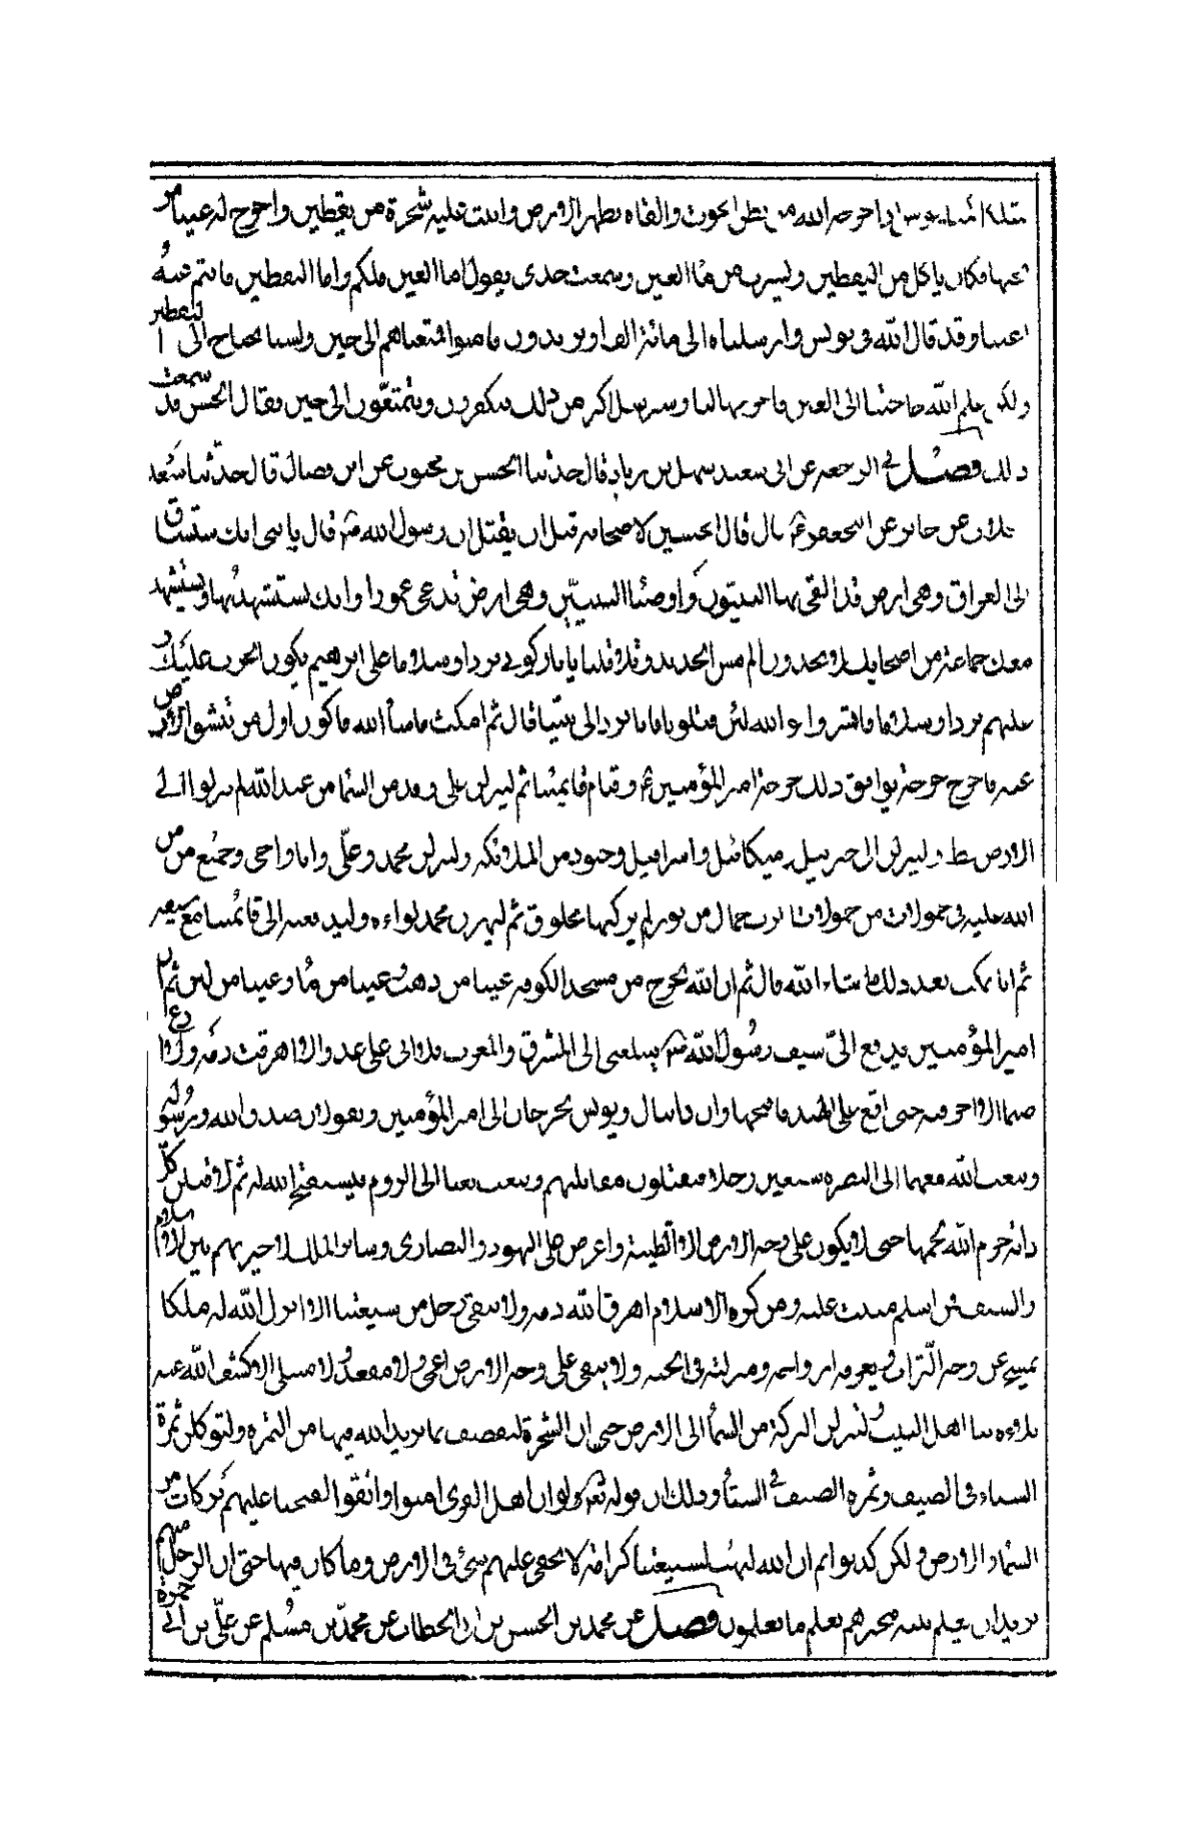 اخرجه الله من بطن الحوت والقاه بظهر الارض وانبت عليه شجرة من يقطين واخرج له عينا من
تحتها فكان ياكل من اليقطين ويشرب من ماء العين وسمعت جدى يقول اما العين فلكم واما اليقطين فانتم عنه
اغنيا وقد قال الله فى يونس وارسلناه الى مائة الف او يزيدون فامنوا فمتعناهم الى حين ولسنا نحتاج الى اليقطين
ولكن علم الله حاجتنا الى العين فاخرجها لنا وسنرسل اكثر من ذلك فيكفرون ويتمتعون الى حين فقال الحسن قد سمعت
ذلك فصل فى الرجعة عن ابى سعيد سهل بن زياد قال حدثنا الحسن بن محبوب عن ابن فضال قال حدثنا سعد
عن جابر عن ابى جعفر ع قال قال الحسين لاصحابه قبل ان يقتل ان رسول الله ص قال يا بنى انك ستساق
الى العراق وهى ارض قد التقى بها النبيون واوصياء النبيين وهى ارض تدعى عمورا وانك تستشهد بها ويستشهد
معك جماعة من اصحابك لا يجدون الم مس الحديد وتلا قلنا يا نار كونى بردا وسلاما على ابرهيم يكون الحرب عليك و
عليهم بردا وسلاما فابشروا فو الله لئن قتلونا فانا نرد الى نبينا قال ثم امكث ما شاء الله فاكون اول من تنشق الارض
عنه فاخرج خرجة يوافق ذلك خرجة امير المؤمنين ع وقيام قائمنا ثم لينزلن على وفد من السماء من عند الله لم ينزلوا الى
الارض قط ولينزلن الى جبرئيل وميكائيل واسرافيل وجنود من الملائكة ولينزلن محمد وعلى وانا واخى وجميع من من
الله عليه فى حمولات من حمولات الرب جمال من نور لم يركبها مخلوق ثم ليهزن محمد لواءه وليدفعنه الى قائمنا مع سيفه
ثم انا نمكث بعد ذلك ما شاء الله قال ثم ان الله يخرج من مسجد الكوفه عينا من دهن وعينا من ماء وعينا من لبن ثم ان
امير المؤمنين يدفع الى سيف رسول الله ص يبعثنى الى المشرق والمغرب فلا اتى على عدو الا اهرقت دمه ولا ادع
صنما الا احرقته حتى اقع على الهند فافتحها وان دانيال ويونس يخرجان الى امير المؤمنين ويقولان صدق الله ورسوله
ويبعث الله معهما الى البصره سبعين رجلا فيقتلون مقاتليهم ويبعث بعثا الى الروم فيستفتح الله له ثم لاقتلن كل
دابة حرم الله لحمها حتى لا يكون على وجه الارض الا الطيبة واعرض على اليهود والنصارى وسائر الملل لاخيرنهم بين الاسلام
والسيف فمن اسلم مننت عليه ومن كره الاسلام اهرق الله دمه ولا يبقى رجل من شيعتنا الا انزل الله له ملكا
يمسح عن وجهه التراب ويعرفه ازواجه ومنزلته فى الجنه ولا يبقى على وجه الارض اعمى ولا مقعد ولا مبتلى الا كشف الله عنه
بلاءه بنا اهل البيت ولتنزلن البركة من السماء الى الارض حتى ان الشجرة لتقصف بما يريد الله فيها من الثمره ولتوكلن ثمرة
الشتاء فى الصيف وثمره الصيف فى الشتاء وذلك ان قوله تعالى ولو ان اهل القرى امنوا واتقوا لفتحنا عليهم بركات من
السماء والارض ولكن كذبوا ثم ان الله ليهب لشيعتنا كرامة لا يخفى عليهم شئ فى الارض وما كان فيها حتى ان الرجل منهم
يريد ان يعلم علم فيخبرهم بعلم ما يعلمون فصل عن محمد بن الحسن بن ابى الخطاب عن محمد بن مسلم عن على بن ابى حمزة